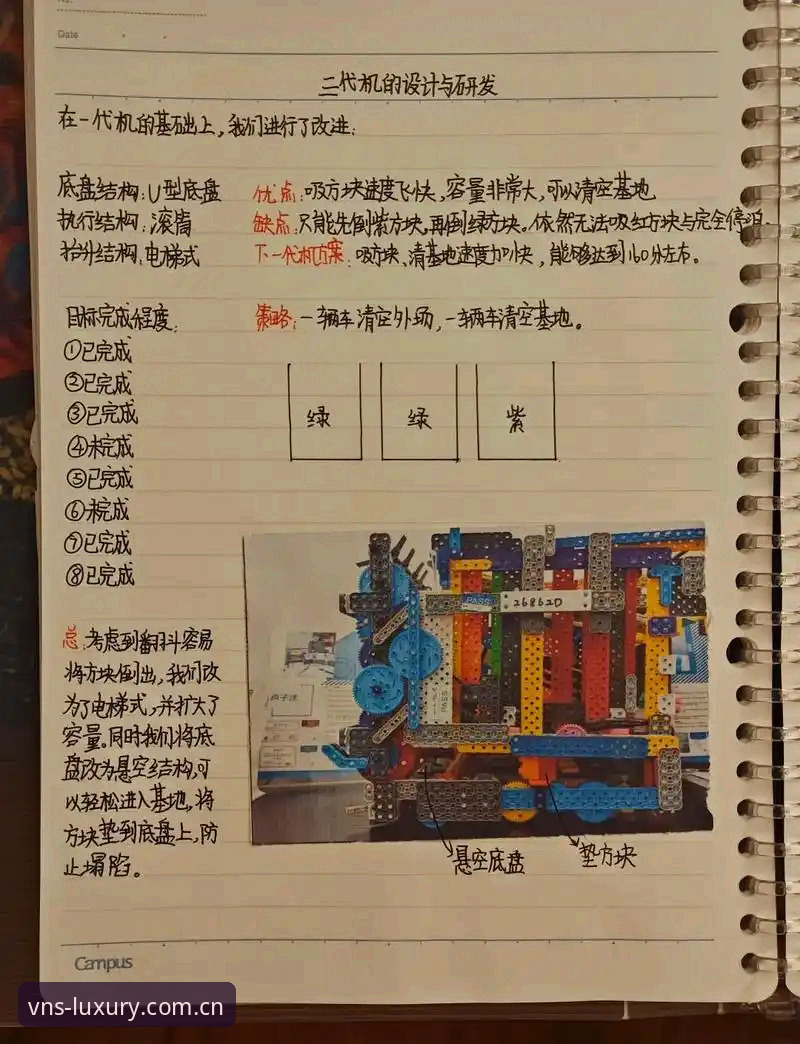 No.
Date
二代机的设计与研发
在一代机的基础上，我们进行了改进：
底盘结构：U型底盘 优点：吸方块速度飞快，容量非常大，可以清空基地
执行结构：滚筒 缺点：只能先倒紫方块，再倒绿方块。依然无法吸红方块与完全停泊。
抬升结构：电梯式 下一代机方案：吸方块、清基地速度加快，能够达到160分左右。
目标完成程度： 策略：一辆车清空外场，一辆车清空基地。
①已完成
②已完成
③已完成
④未完成
⑤已完成
⑥未完成
⑦已完成
⑧已完成
绿 绿 紫
总：考虑到翻斗容易
将方块倒出，我们改
为了电梯式，并扩大了
容量。同时我们将底
盘改为悬空结构，可
以轻松进入基地，将
方块垫到底盘上，防
止塌陷。
PASS
26862D
PASS
悬空底盘 垫方块
Campus
vns-luxury.com.cn